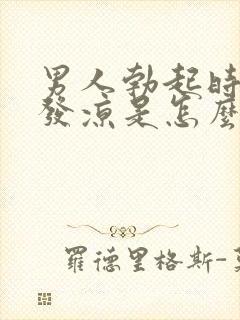 男人勃起時
發涼是怎麼
羅德里格斯-莫